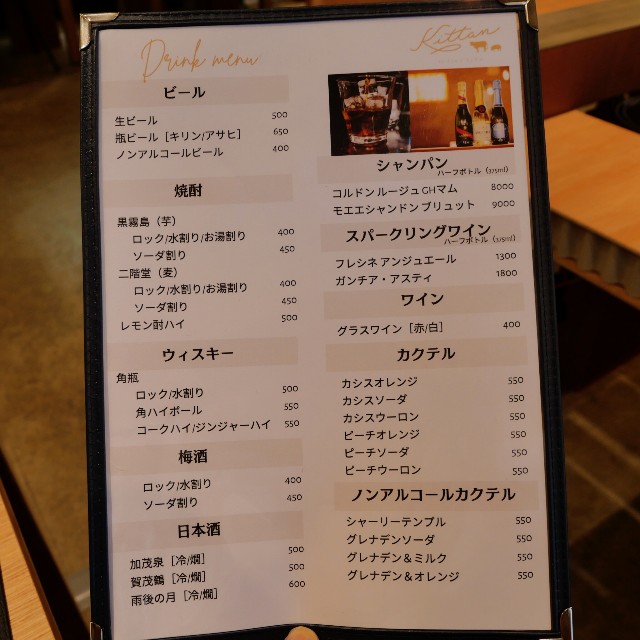 Drink menu
ビール
生ビール 500
瓶ビール［キリン/アサヒ］ 650
ノンアルコールビール 400
焼酎
黒霧島（芋）
ロック/水割り/お湯割り 400
ソーダ割り 450
二階堂（麦）
ロック/水割り/お湯割り 400
ソーダ割り 450
レモン酎ハイ 500
ウィスキー
角瓶
ロック/水割り 500
角ハイボール 550
コークハイ/ジンジャーハイ 550
梅酒
ロック/水割り 400
ソーダ割り 450
日本酒
加茂泉［冷/燗］ 500
賀茂鶴［冷/燗］ 500
雨後の月［冷/燗］ 600
Kittan
シャンパン
ハーフボトル（375ml）
コルドン ルージュ GHマム 8000
モエエシャンドン ブリュット 9000
スパークリングワイン
ハーフボトル（375ml）
フレシネ アンジュエール 1300
ガンチア・アスティ 1800
ワイン
グラスワイン［赤/白］ 400
カクテル
カシスオレンジ 550
カシスソーダ 550
カシスウーロン 550
ピーチオレンジ 550
ピーチソーダ 550
ピーチウーロン 550
ノンアルコールカクテル
シャーリーテンプル 550
グレナデンソーダ 550
グレナデン＆ミルク 550
グレナデン＆オレンジ 550